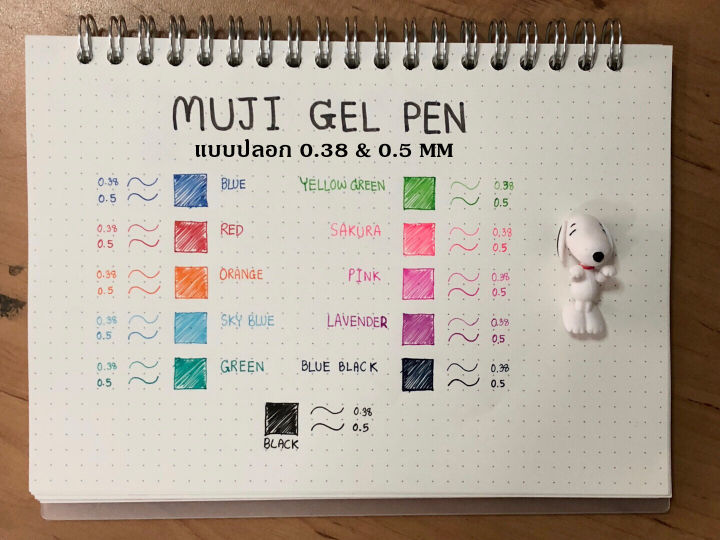 MUJI GEL PEN
แบบปลอก 0.38 & 0.5 MM
0.38 BLUE YELLOW GREEN 0.38
0.5 0.5
0.38 RED SAKURA 0.38
0.5 0.5
0.38 ORANGE PINK 0.38
0.5 0.5
0.38 SKY BLUE LAVENDER 0.38
0.5 0.5
0.38 GREEN BLUE BLACK 0.38
0.5 0.5
0.38
0.5
BLACK